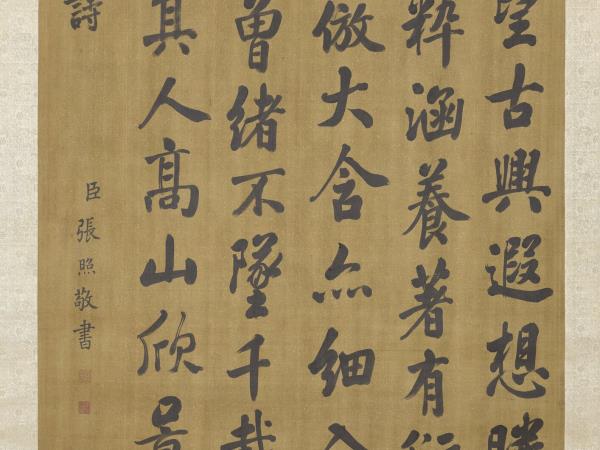 望古興遐想
粹涵養著有
倣大含亦細入
曾緒不墜千載
其人高山欣景
詩
臣張照敬書